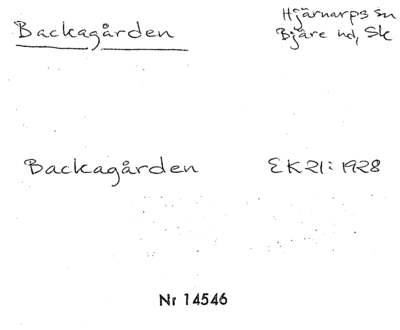 Backagården
Hjärnarps sn
Bjäre hd, Sk
Backagården EK21: 1928
Nr 14546